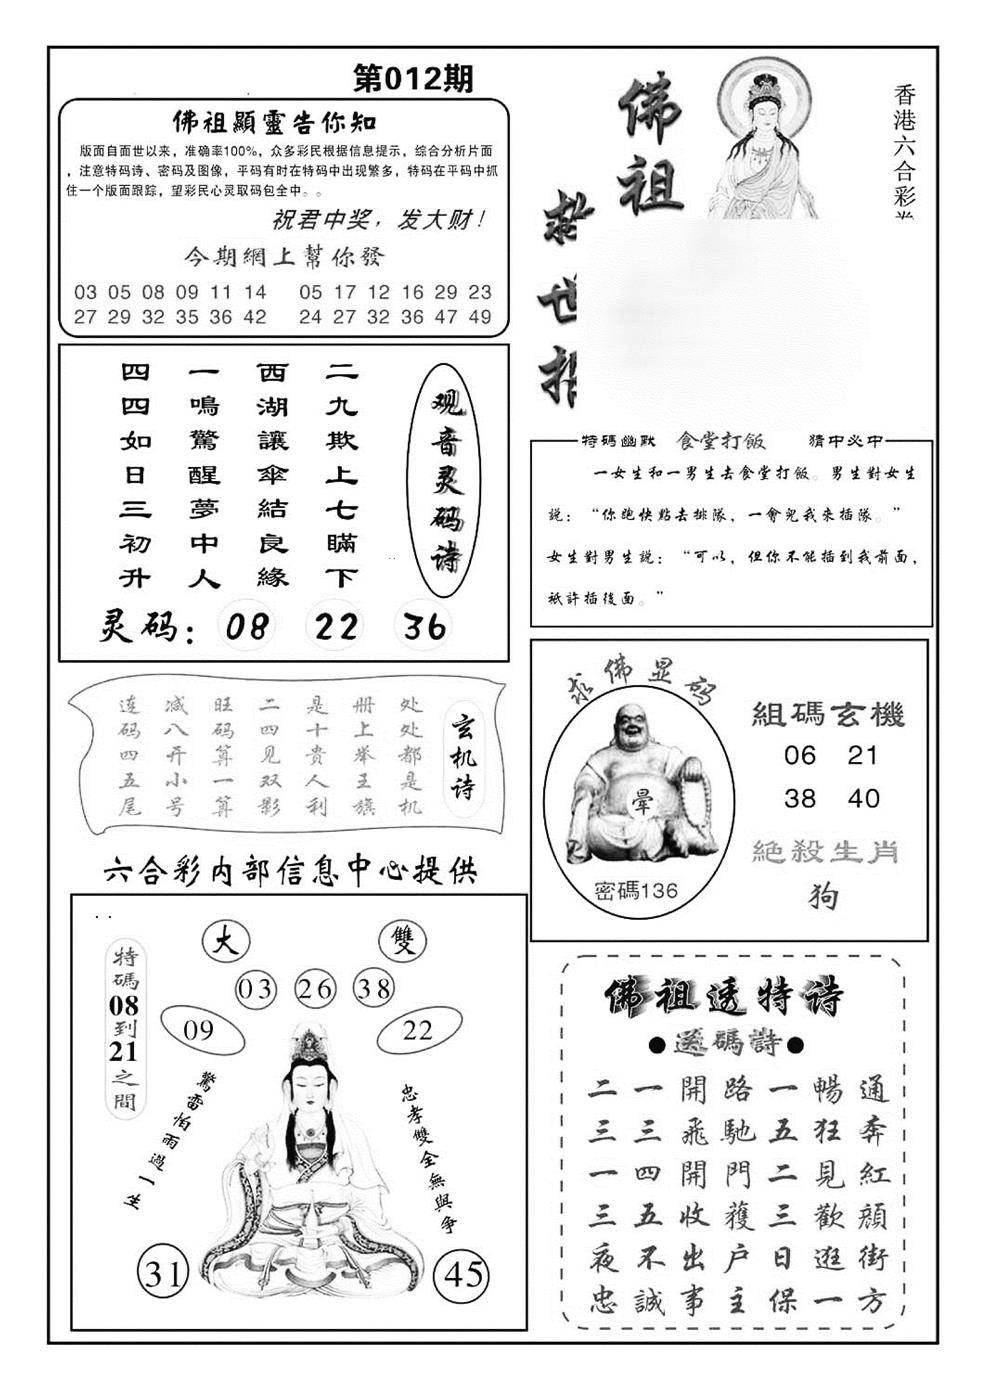 第012期
佛祖顯靈告你知
版面自面世以来，准确率100%，众多彩民根据信息提示，综合分析片面
，注意特码诗、密码及图像，平码有时在特码中出现繁多，特码在平码中抓
住一个版面跟踪，望彩民心灵取码包全中。。
祝君中奖，发大财！
今期網上幫你發
03 05 08 09 11 14 05 17 12 16 29 23
27 29 32 35 36 42 24 27 32 36 47 49
佛祖
救世
香港六合彩
观音灵码诗
二九欺上七瞞下
西湖讓傘結良緣
一鳴驚醒夢中人
四四如日三初升
灵码：08 22 36
特碼幽默 食堂打飯 猜中必中
一女生和一男生去食堂打飯。男生對女生
説：“你跑快點去排隊，一會兒我来插隊。”
女生對男生説：“可以，但你不能插到我前面，
衹許插後面。”
玄机诗
处处都是机
册上举王旗
是十贵人利
二四见双影
旺码算一算
减八开小号
连码四五尾
六合彩内部信息中心提供
求佛显码
暈
密碼136
組碼玄機
06 21
38 40
絕殺生肖
狗
特碼08到21之間
大 雙
03 26 38
09 22
驚雷怕雨過一生
忠孝雙全無與争
31 45
佛祖透特诗
●送碼詩●
二一開路一暢通
三三飛馳五狂奔
一四開門二見紅
三五收獲三歡顔
夜不出户日逛街
忠誠事主保一方